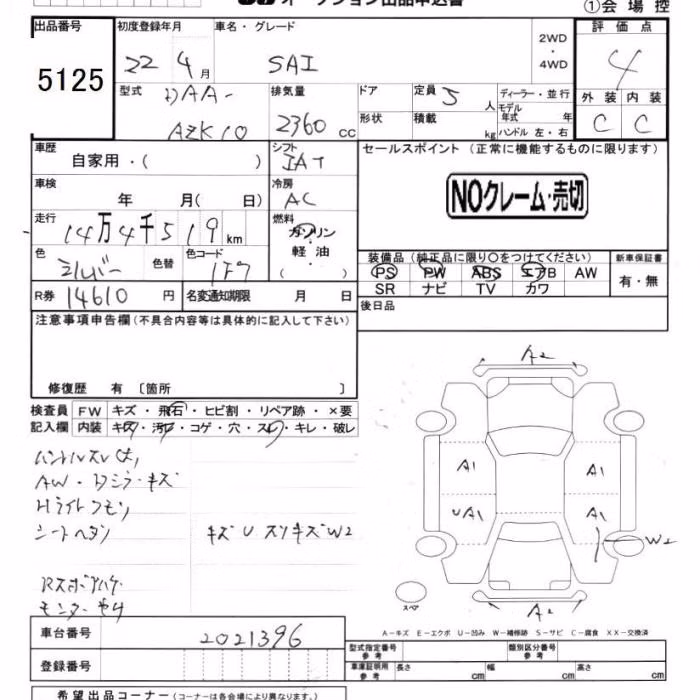 オークション出品申込書
①会場控
出品番号 初度登録年月 車名・グレード 2WD・4WD 評価点
5125 22 4月 SAI 4
型式 DAA-AZK10 排気量 2360 cc ドア 定員 5人 ディーラー・並行
形状 積載 kg モデル年式 年 ハンドル 左・右
外装 内装
C C
車歴 自家用・( ) シフト IAT セールスポイント (正常に機能するものに限ります)
車検 年 月(日) 冷房 AC
NOクレーム・売切
走行 14万4千519km 燃料 ガソリン・軽油・( )
色 シルバー 色替 色コード 1F7
装備品 (純正品に限り○をつけてください) 新車保証書
PS PW ABS エアB AW 有・無
SR ナビ TV カワ
R券 14610円 名変通知期限 月 日 後日品
注意事項申告欄 (不具合内容等は具体的に記入して下さい)
修復歴 有 〔箇所 〕
検査員 FW キズ・飛石・ヒビ割・リペア跡・×要
記入欄 内装 キズ・汚レ・コゲ・穴・スレ・キレ・破レ
ハンドルスレ大
AW・Dミラーキズ
Hライトクモリ
シートヘタリ キズU スリキズW2
モニターヤケ
A2
A1 A1
UA1 A1
W2
スペア
A2
A-キズ E-エクボ U-凹み W-補修跡 S-サビ C-腐食 XX-交換済
車台番号 2021396
登録番号
型式指定番号 参考 類別区分番号 参考
車庫証明用 参考 長さ cm 幅 cm 高さ cm
希望出品コーナー (コーナーは各会場により異なります。)